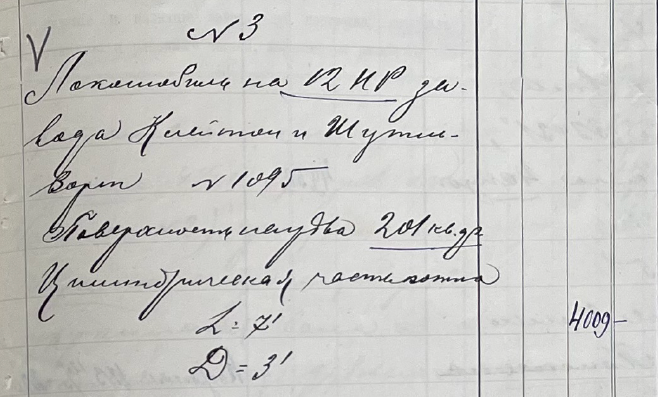 V
N 3
Локомобиль на 12 HP за-
вода Клейтон и Шутле-
ворт N 1095
Поверхность нагрева 201 кв. ф.
Цилиндрическая часть котла
L = 7'
D = 3'
4009 –